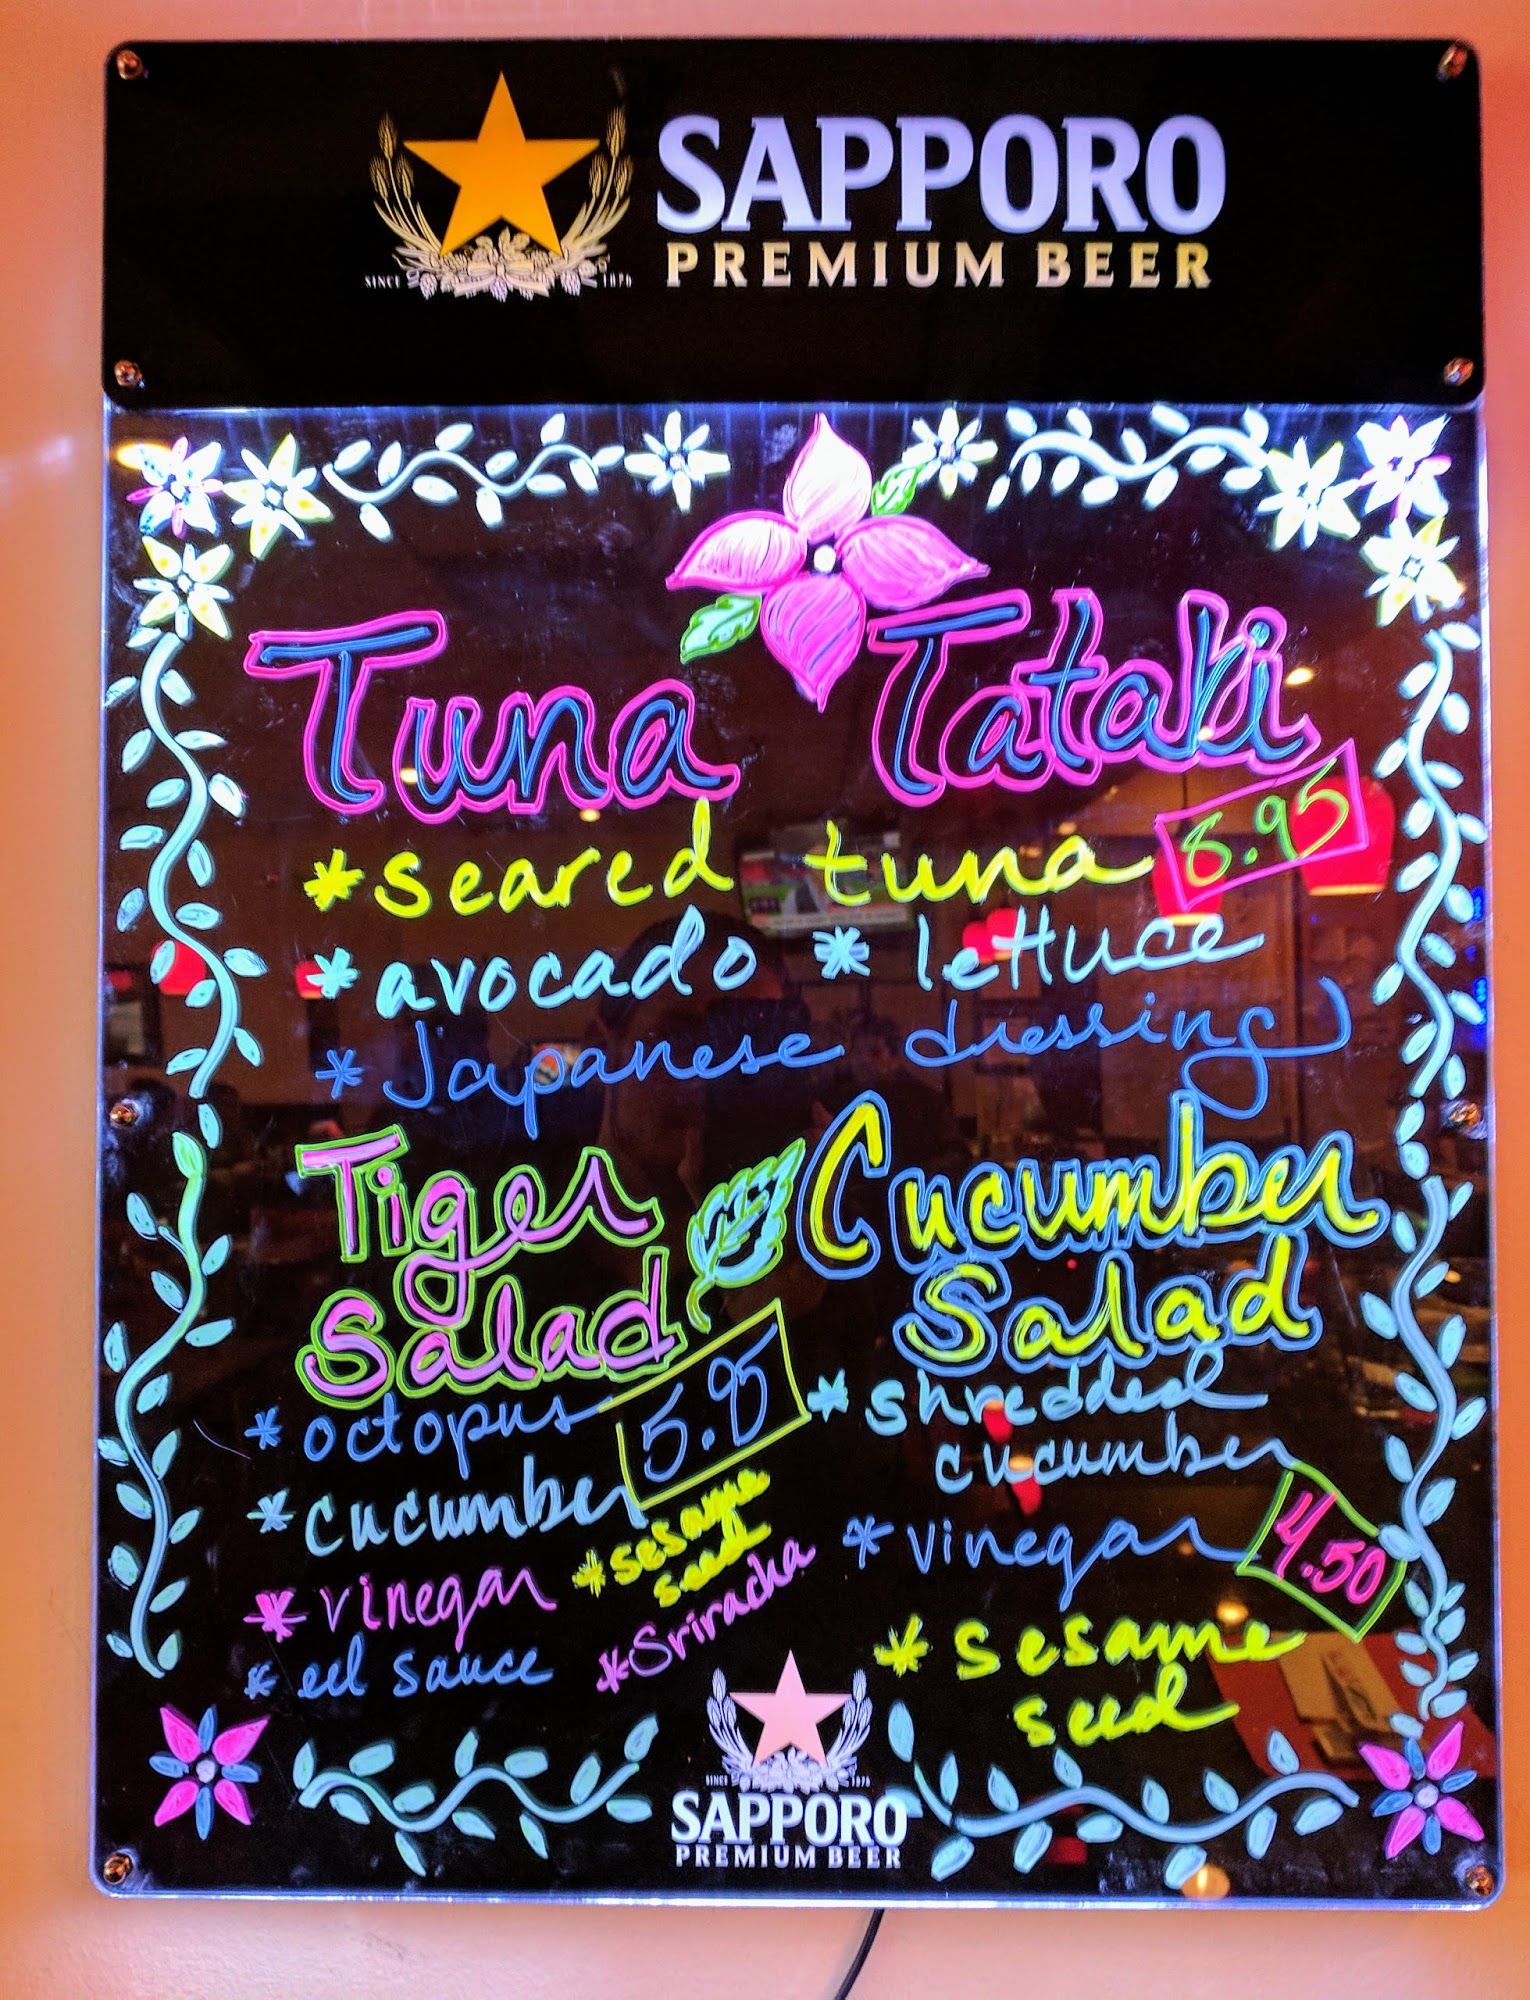 SAPPORO
PREMIUM BEER
SINCE 1876
Tuna Tataki
*seared tuna 8.95
*avocado *lettuce
*Japanese dressing
Tiger
Salad
*octopus 5.95
*cucumber
*vinegar *sesame
seed
*eel sauce *Sriracha
Cucumber
Salad
*shredded
cucumber
*vinegar 4.50
*sesame
seed
SINCE 1876
SAPPORO
PREMIUM BEER